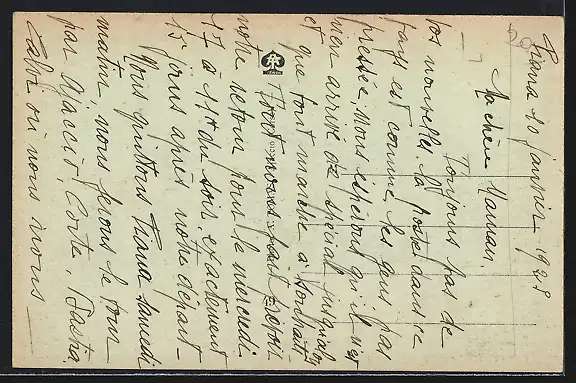 Piana 20 Janvier 1928
Ma chère Maman.
Toujours pas de
tos nouvelles. La poste dans ce
pays est comme les gens pas
pressée. Nous espérons qu'il n'est
rien arrivé de spécial jusqu'ici
et que tout marche à souhait
Tout nous fait prévoir
notre retour pour le mercredi
17 à 11h du soir. exactement
15 jours après notre départ
Nous quittons Piana samedi
matin, nous ferons le tour
par Ajaccio, Corte, Bastia,
Calvi où nous nous